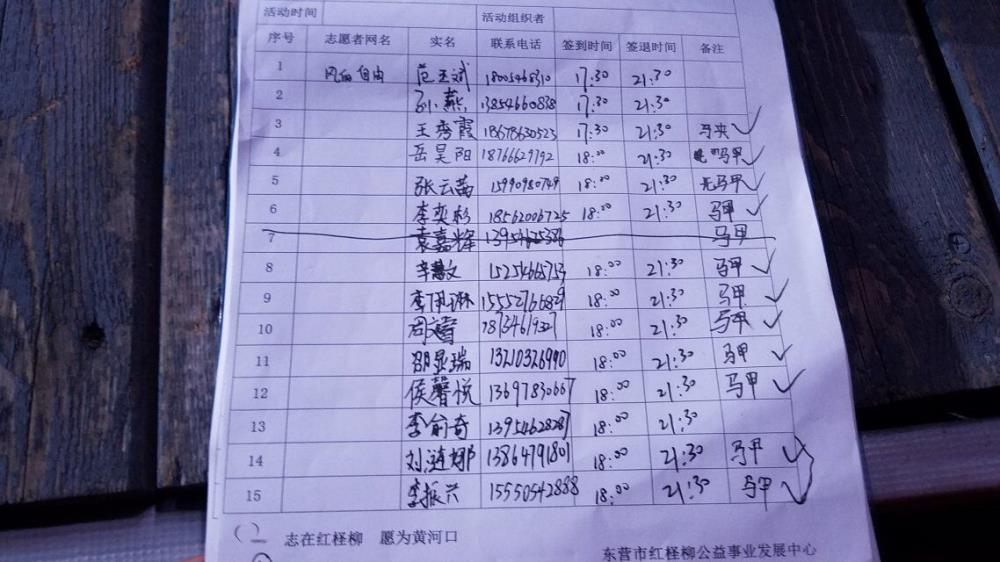 活动时间 活动组织者
序号 志愿者网名 实名 联系电话 签到时间 签退时间 备注
1 自由 范玉斌 18005468310 17:30 21:30
2 孙燕 13854660838 17:30 21:30
3 王秀霞 18678630523 17:30 21:30 马夹
4 岳昊阳 18766629792 18:00 21:30 马甲
5 张云茜 15990980749 18:00 21:30 无马甲
6 李奕杉 18562006725 18:00 21:30 马甲
7 袁嘉烽 马甲
8 辛慧文 15254665753 18:00 21:30 马甲
9 18:00 21:30 马甲
10 18:00 21:30 马甲
11 邵显瑞 13210326990 18:00 21:30 马甲
12 侯馨悦 13697830667 18:00 21:30 马甲
13 李俞奇 13954628287 18:00 21:30
14 刘涟娜 13864791801 18:00 21:30 马甲
15 李振兴 15550542888 18:00 21:30 马甲
志在红柽柳 愿为黄河口
东营市红柽柳公益事业发展中心